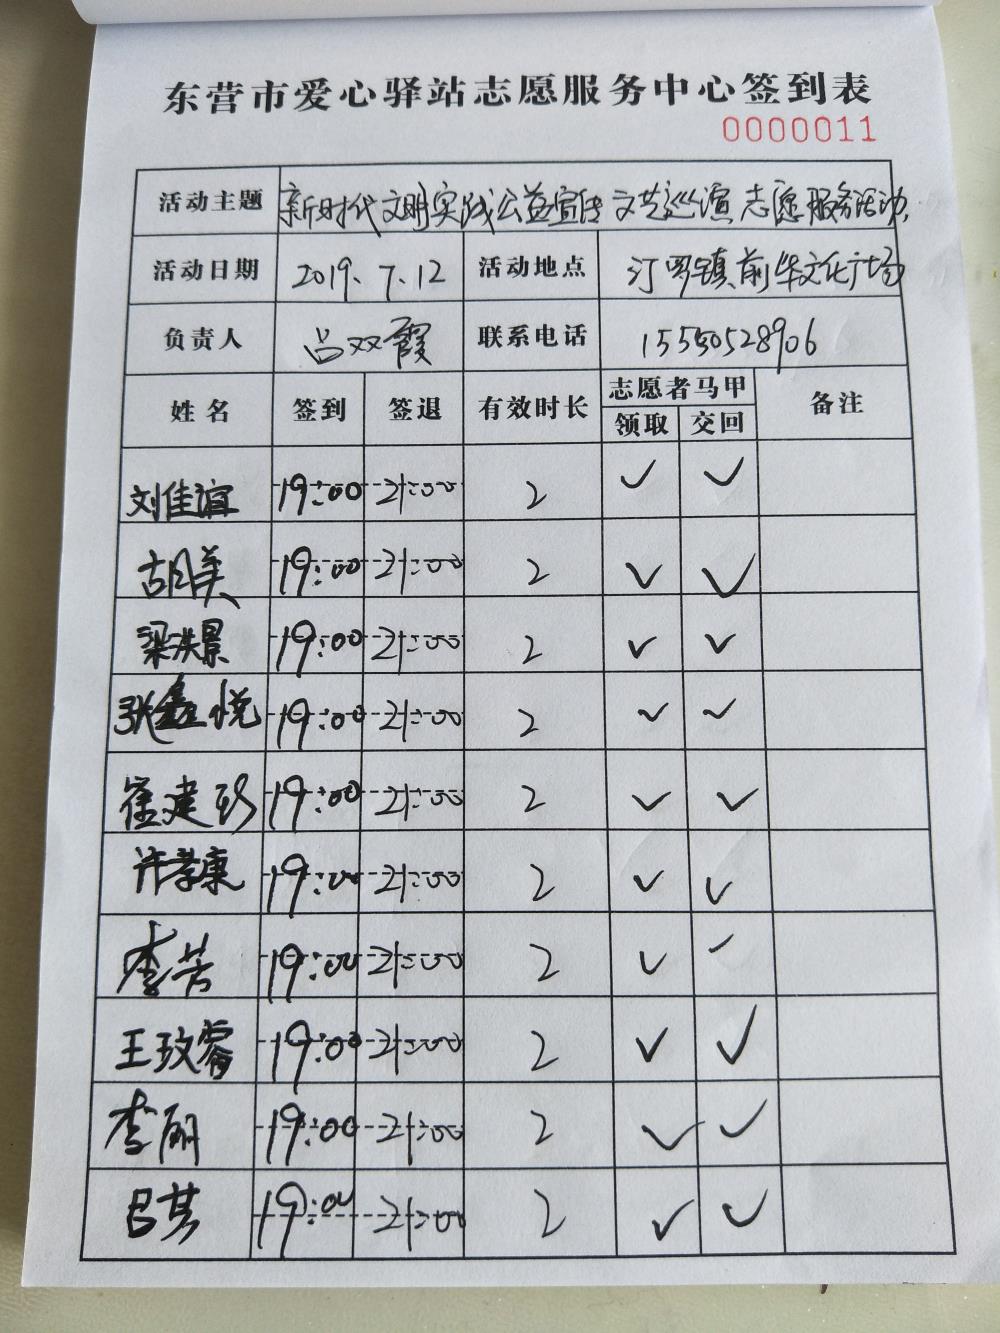 东营市爱心驿站志愿服务中心签到表
0000011
活动主题 新时代文明实践公益宣传文艺巡演志愿服务活动
活动日期 2019.7.12 活动地点 汀罗镇前华文化广场
负责人 吕双霞 联系电话 15550528906
姓名 签到 签退 有效时长 志愿者马甲 备注
领取 交回
刘佳谊 19:00 21:00 2 ✓ ✓
胡英 19:00 21:00 2 ✓ ✓
梁洪景 19:00 21:00 2 ✓ ✓
张鑫悦 19:00 21:00 2 ✓ ✓
崔建珍 19:00 21:00 2 ✓ ✓
许孝康 19:00 21:00 2 ✓ ✓
李芳 19:00 21:00 2 ✓ ✓
王玟睿 19:00 21:00 2 ✓ ✓
李丽 19:00 21:00 2 ✓ ✓
吕其 19:00 21:00 2 ✓ ✓